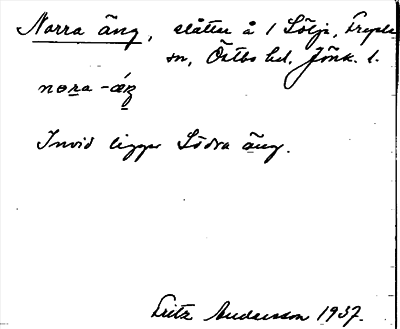 Norra äng, slåtter å 1 Sölje,
sn, Östbo hd, Jönk. l.
Invid ligger Södra äng.
Fritz Andersson 1937.